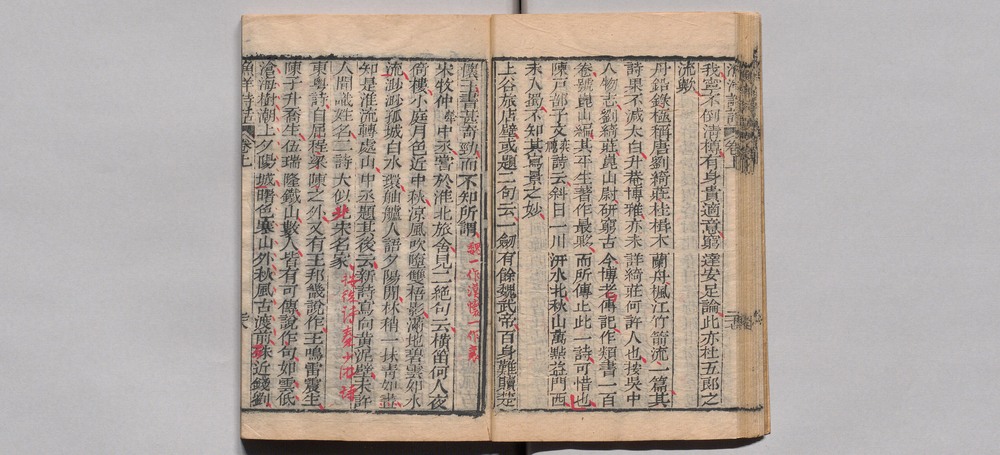 漁洋詩話 卷上
我寧不倒清樽有身貴適意窮達安足論此亦杜五郎之
流歟
丹鉛錄極稱唐劉綺莊桂楫木蘭舟楓江竹箭流一篇其
詩果不減太白升菴博雅亦未詳綺莊何許人也按吳中
人物志劉綺莊崑山尉研窮古今博考傳記作類書一百
卷號崑山編其平生著作最夥而所傳止此一詩可惜也
陳戶部子文奕禧詩云斜日一川汧水北秋山萬點益門西
未人蜀不知其寫景之妙
上谷旅店壁或題二句云一劒有餘魏武帝百身難贖楚
懷王書甚奇勁而不知所謂 魏一作漢懷一作襄
宋牧仲犖中丞嘗於淮北旅舍見二絕句云橫笛何人夜
倚樓小庭月色近中秋涼風吹墮雙梧影滿地碧雲如水
流渺渺孤城白水環舳艫人語夕陽間林梢一抹青如畫
知是淮流轉處山中丞題其後云新詩鳥向黃泥壁未許
人間識姓名二詩大似北宋名家 後詩秦少游詩
東粤詩自屈程梁陳之外又有王邦畿說作王鳴雷震生
陳子升喬生伍瑞隆鐵山數人皆有可傳說作句如雲低
滄海樹潮上夕陽城曙色寒山外秋風古渡前殊近錢劉
漁洋詩話 卷上